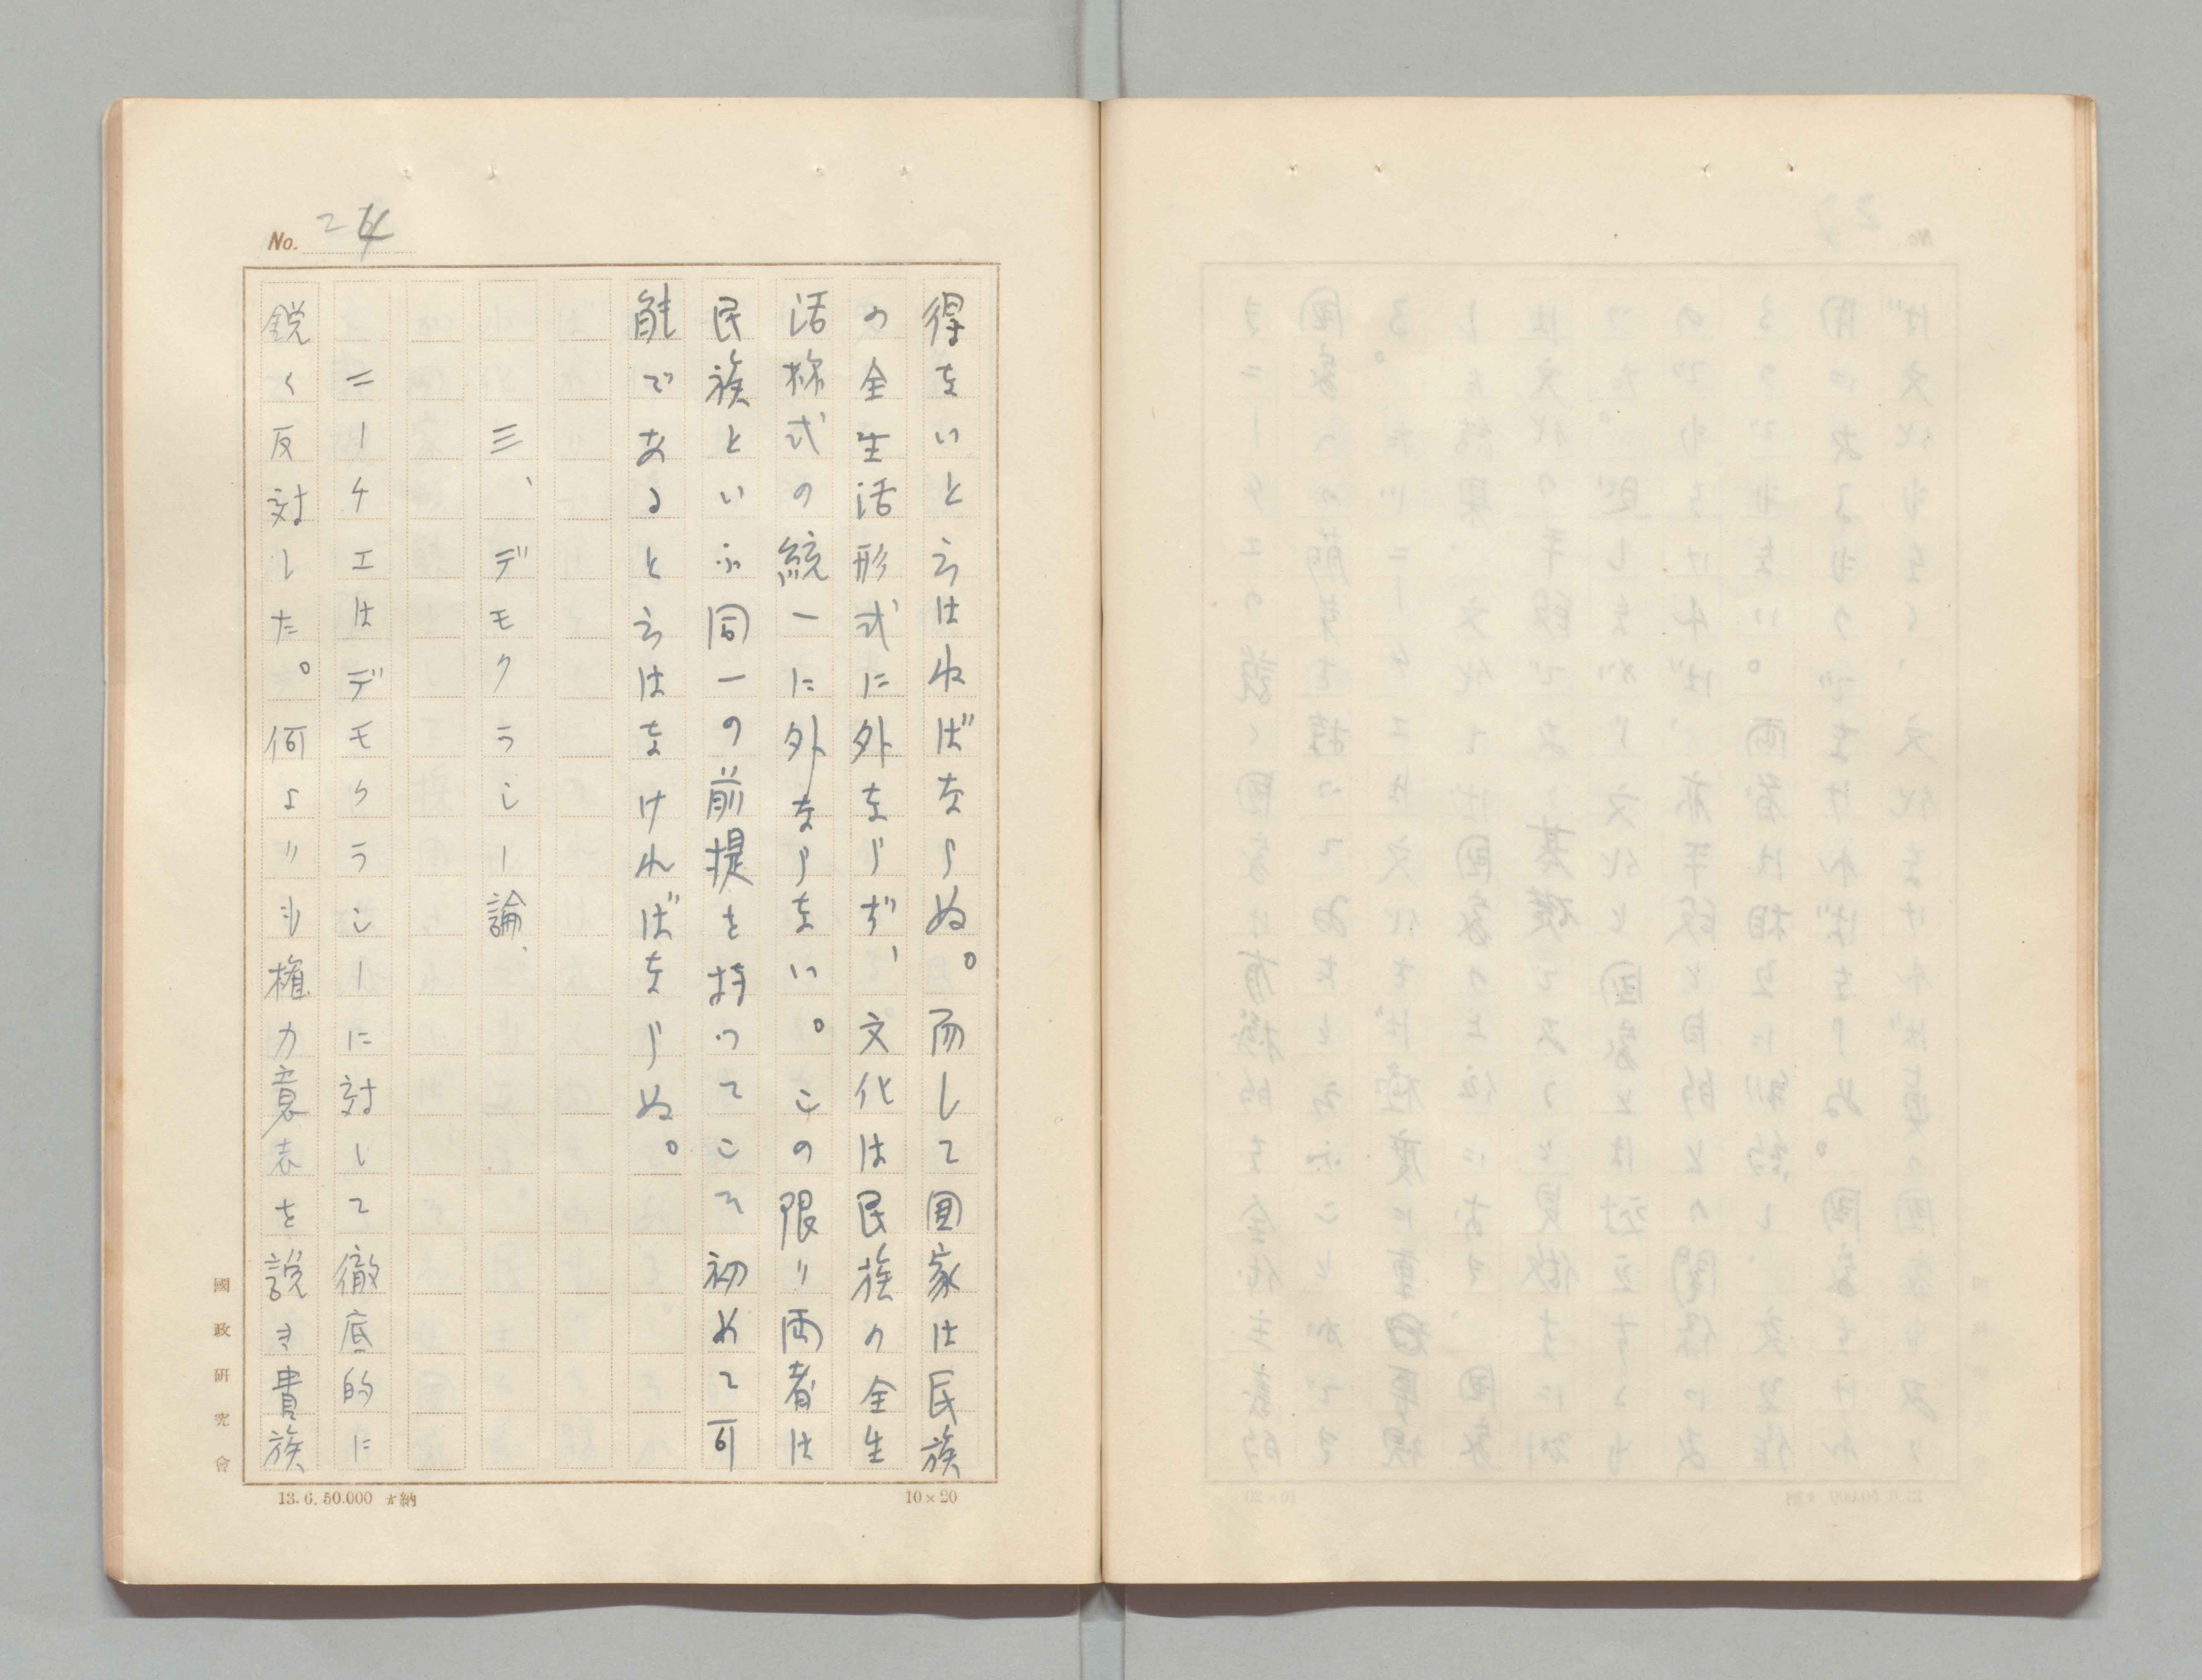 No. 24
得ないと云はねばならぬ。而して国家は民族
の全生活形式に外ならず、文化は民族の全生
活様式の統一に外ならない。この限り両者は
民族といふ同一の前提を持つてこそ初めて可
能であると云はなければならぬ。
三、デモクラシー論、
ニーチエはデモクラシーに対して徹底的に
鋭く反対した。何よりも権力意志を説き貴族
國政研究會
13.6.50.000 納
10×20